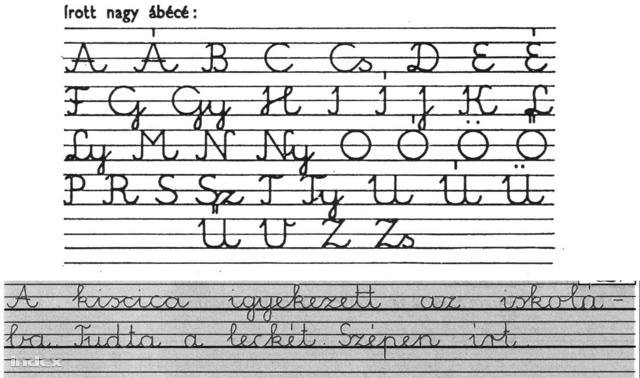 Írott nagy ábécé:
A Á B C Cs D E É
F G Gy H I Í J K L
Ly M N Ny O Ó Ö Ő
P R S Sz T Ty U Ú Ü
Ű V Z Zs
A kiscica igyekezett az iskolá-
ba. Tudta a leckét. Szépen írt.
index